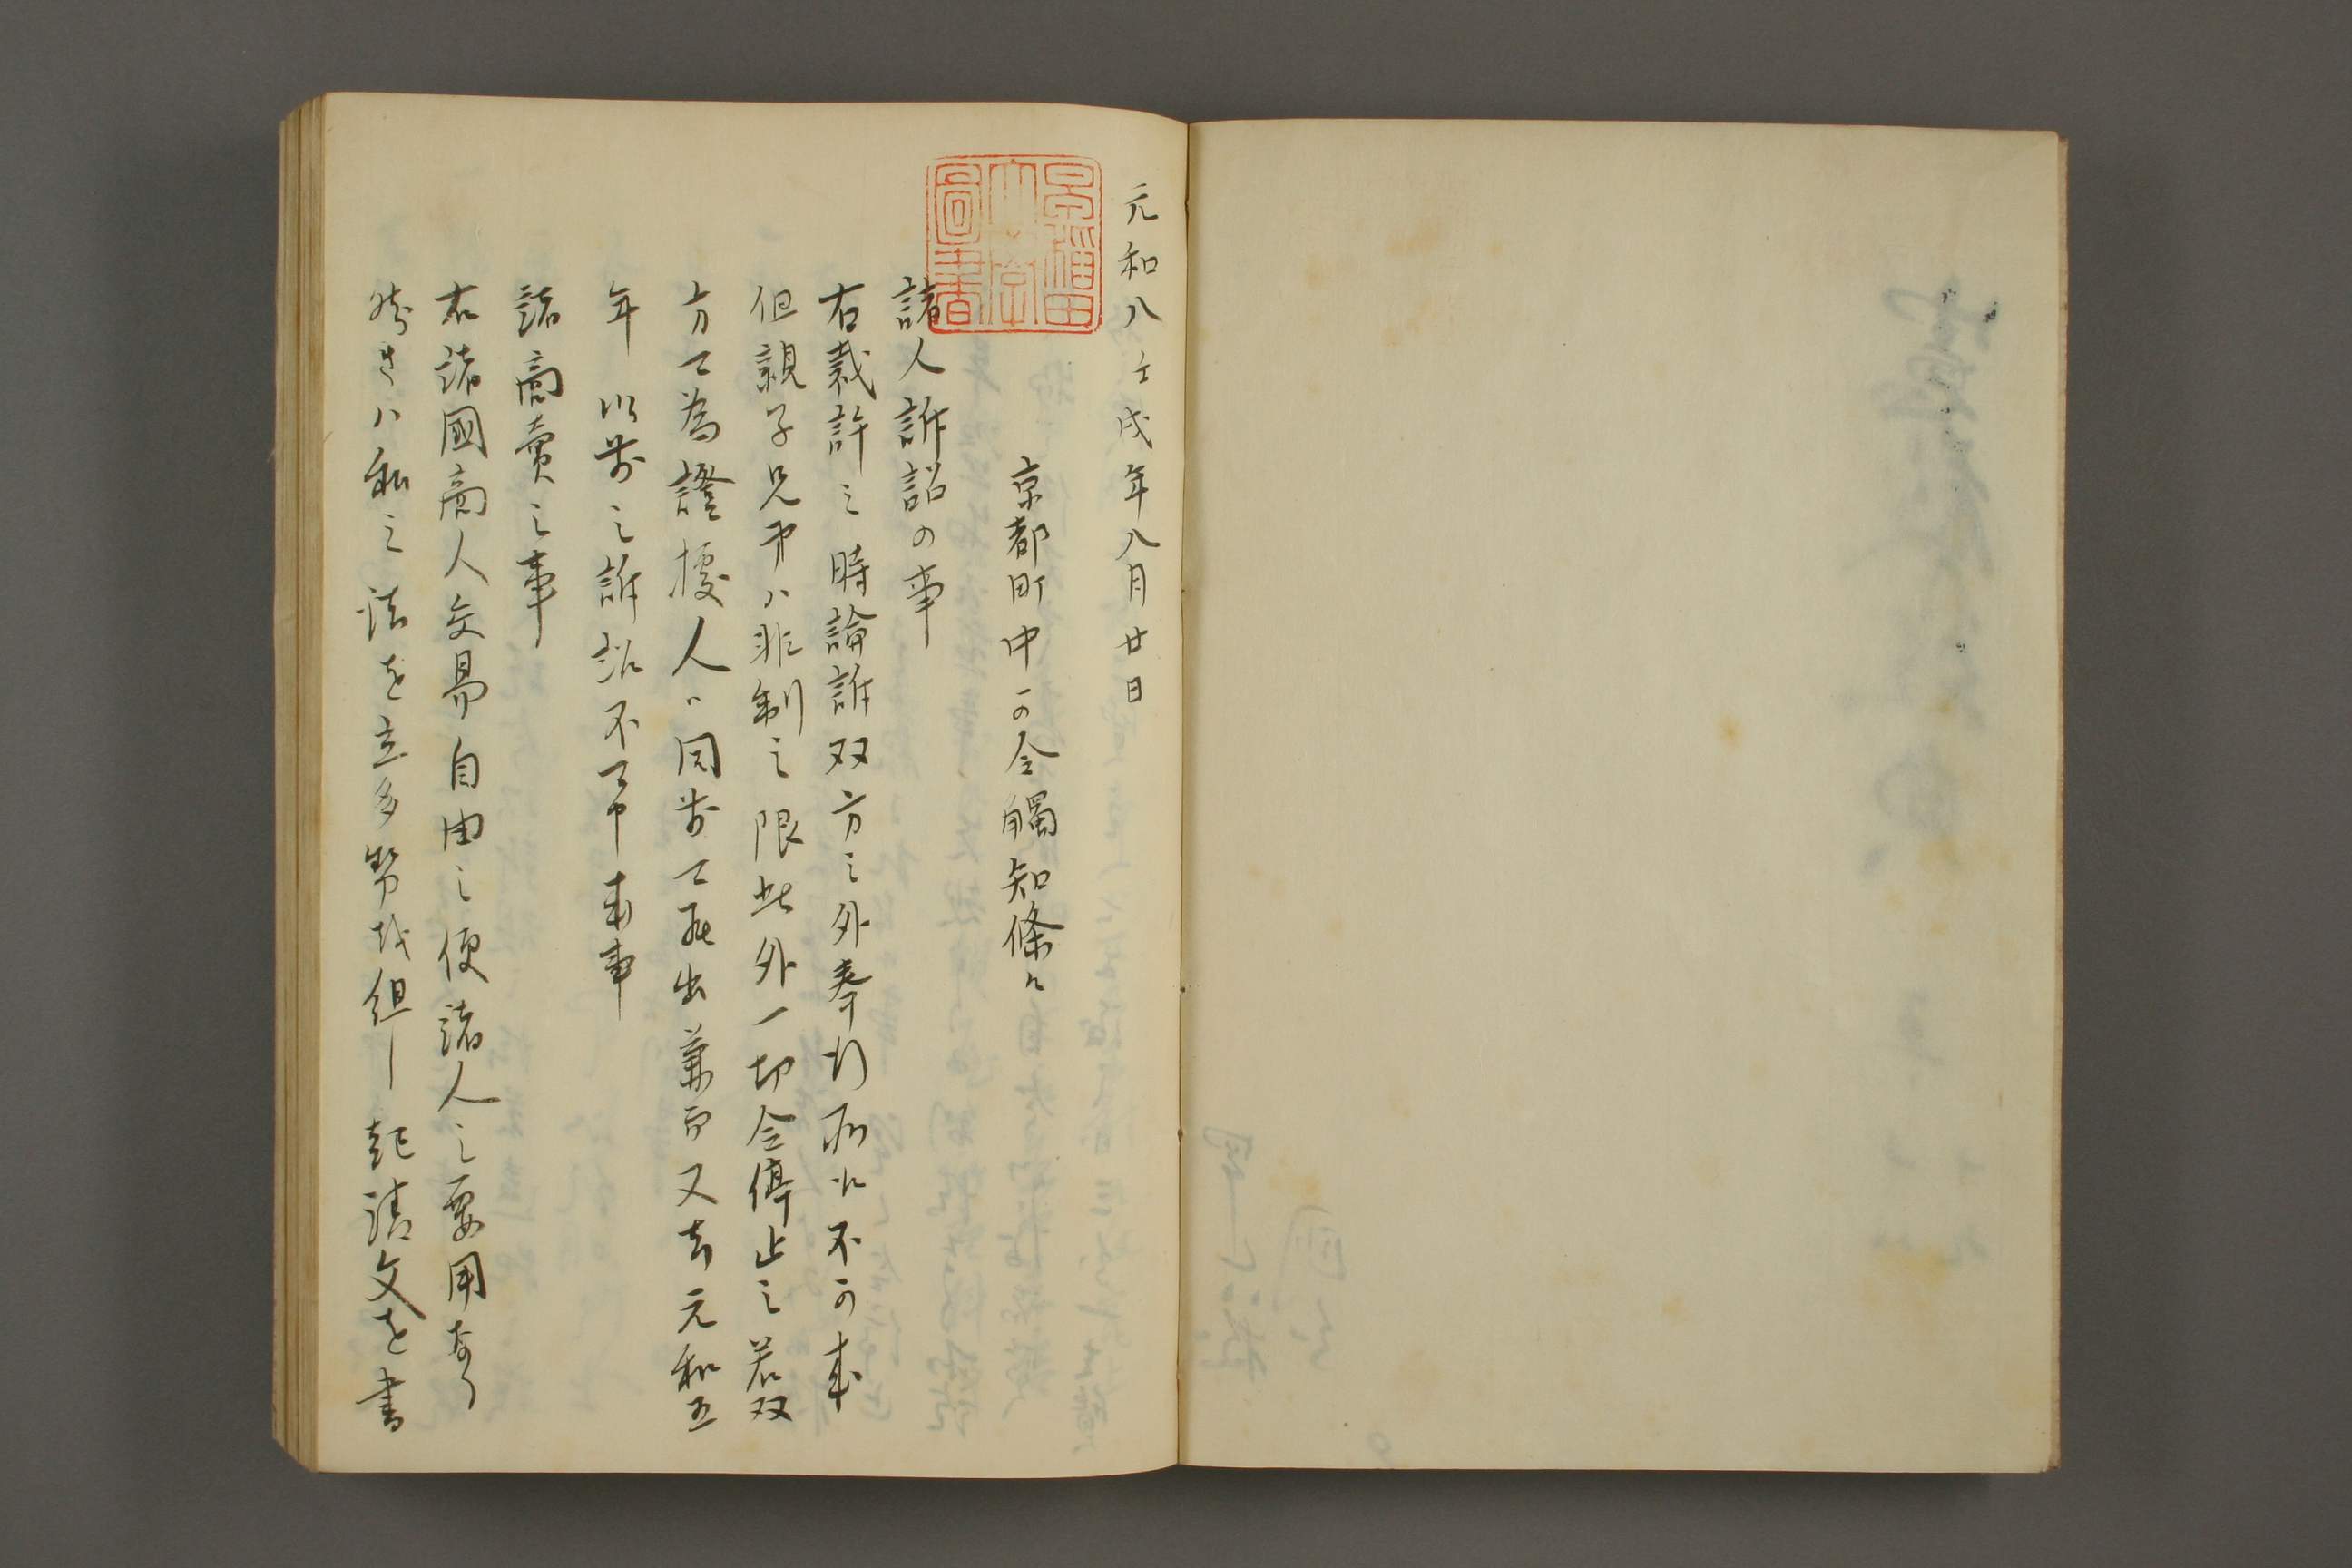 元和八壬戌年八月廿日
京都町中可令觸知條々
諸人訴詔の事
右裁許之時論訴双方之外奉行所江不可来
但親子兄弟ハ非制之限此外一切令停止之若双
方可為證據人ハ同前可罷出兼而又去元和五
年以前之訴詔不可申来事
諸商賣之事
右諸國商人交易自由之便諸人之要用なり
然きハ私之法を立多勢徒組し起請文を書
早稲田大学圖書